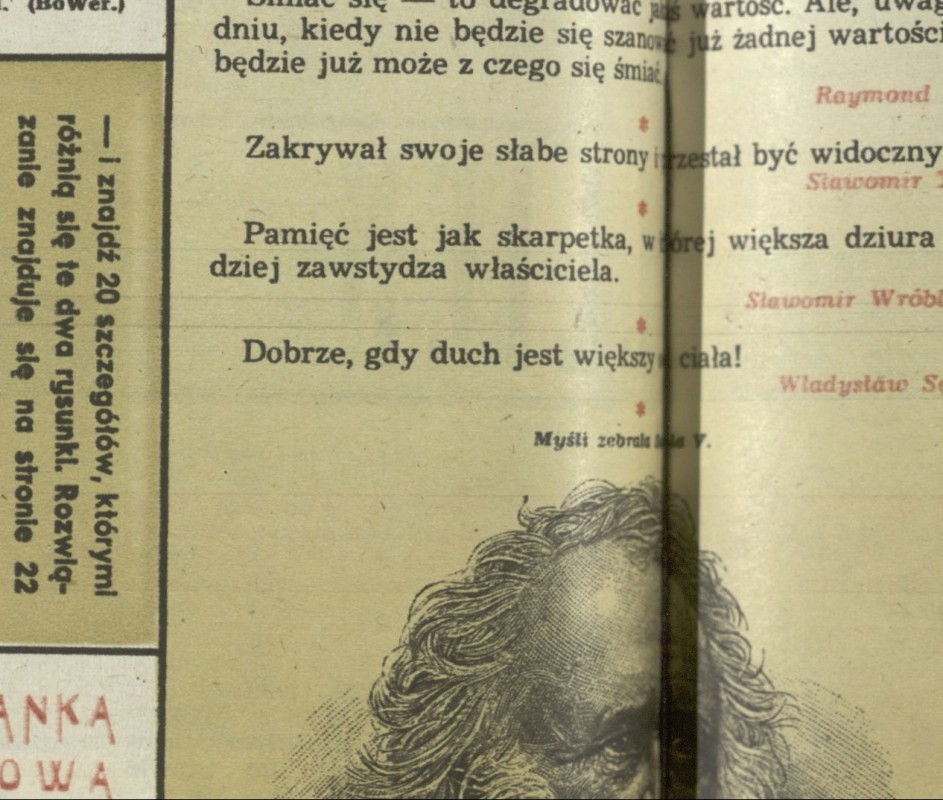 (BoWer.)
Śmiać się — to degradować jakąś wartość. Ale,
dniu, kiedy nie będzie się szanować już żadnej wartości
będzie już może z czego się śmiać.
Raymond
Zakrywał swoje słabe strony i przestał być widoczny
Sławomir
Pamięć jest jak skarpetka, w której większa dziura
dziej zawstydza właściciela.
Sławomir Wróbl
Dobrze, gdy duch jest większy ciała!
Władysław
Myśli zebrała V.
— i znajdź 20 szczegółów, którymi
różnią się te dwa rysunki. Rozwią-
zanie znajduje się na stronie 22
ANKA
OWA